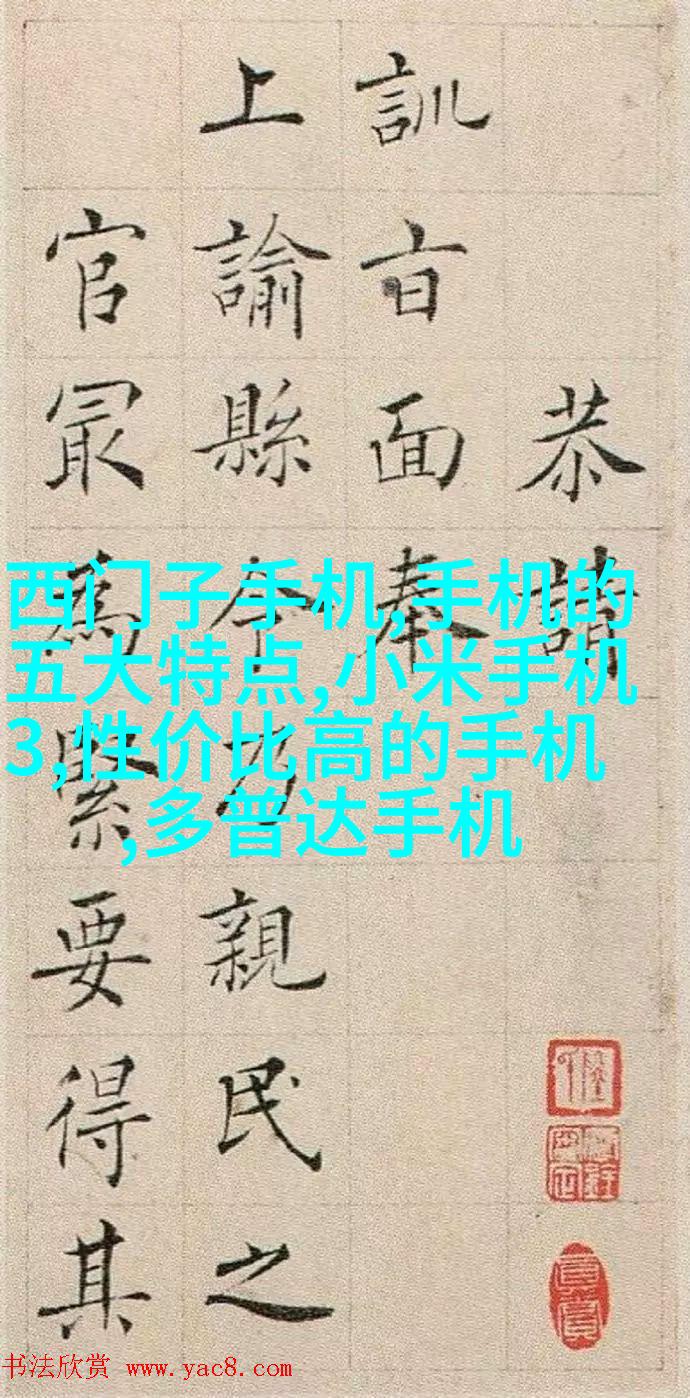 恭請
訓㫖面奉
上諭縣令乃親民之
官冣為緊要得其
西门子手机,手机的
五大特点,小米手机
3,性价比高的手机
,多普达手机
书法欣赏 www.yac8.com